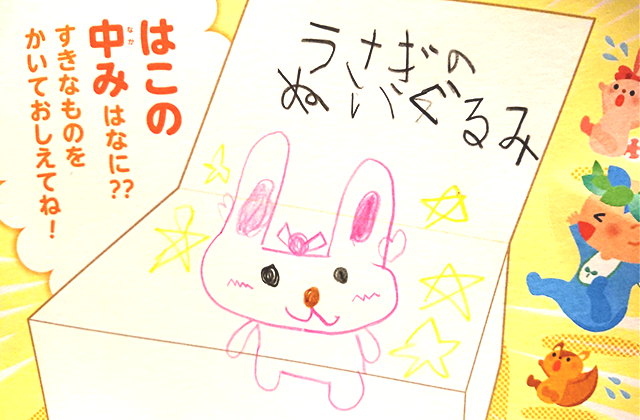 はこの
中みはなに??
なか
すきなものを
かいておしえてね!
うさぎの
ぬいぐるみ